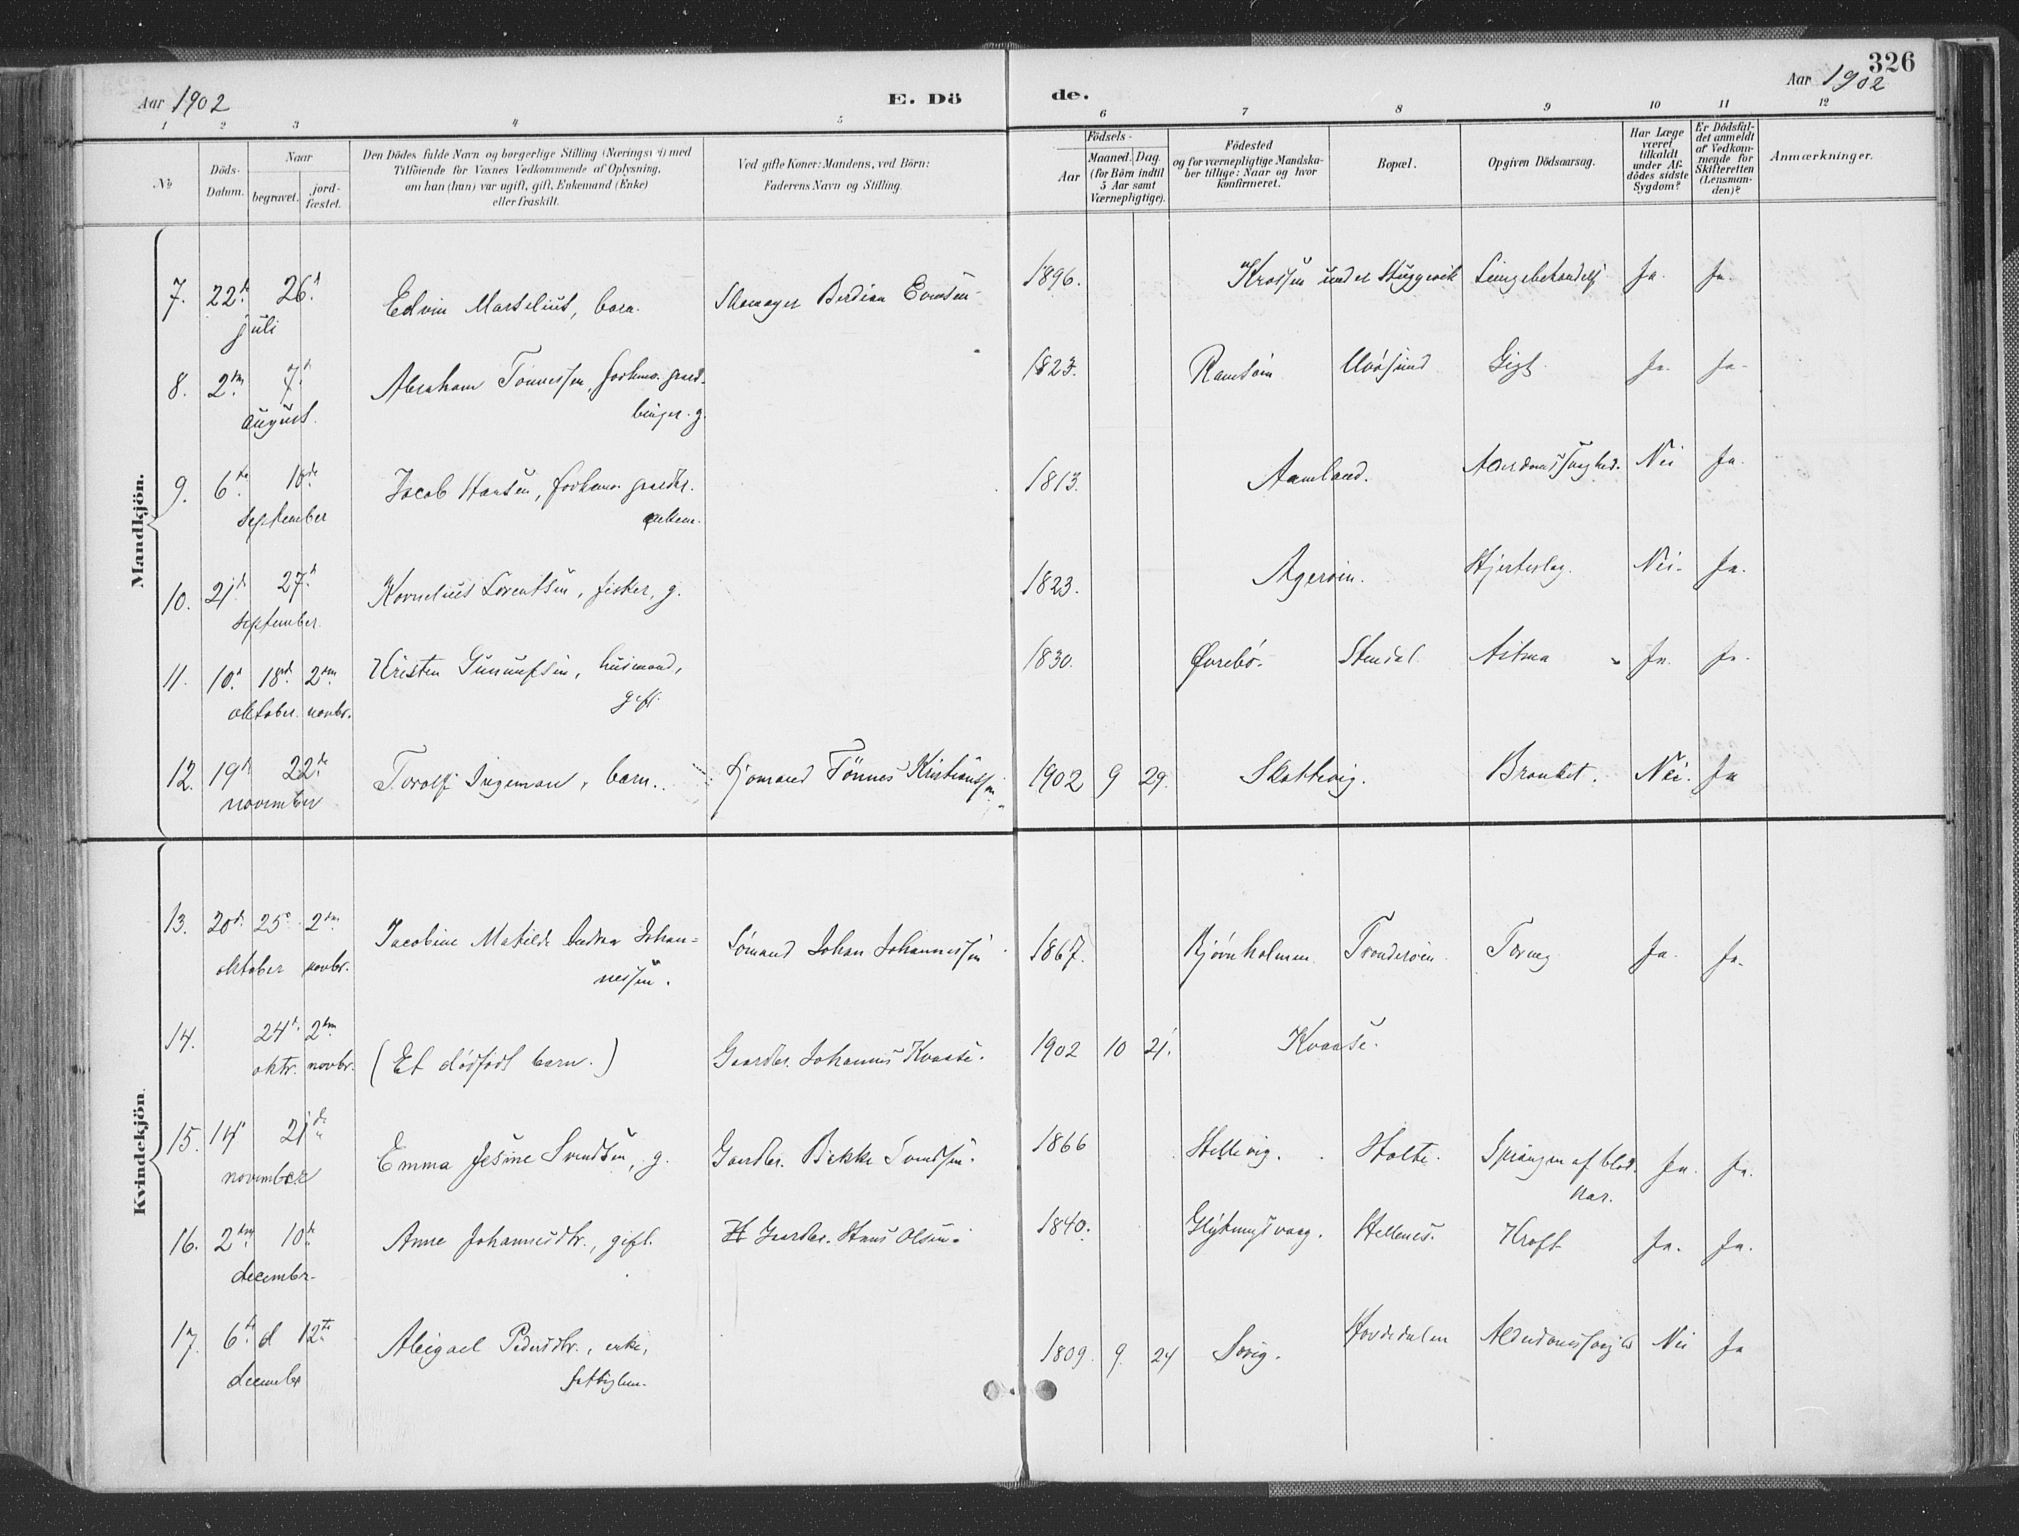 326
Aar 1902
E. Dö
de.
Aar 1902
1 2 3 4 5 6 7 8 9 10 11 12
№
Döds-
Datum.
Naar
begravet.
jord-
fæstet.
Den Dödes fulde Navn og borgerlige Stilling (Næringsvei) med
Tilföiende for Voxnes Vedkommende af Oplysning,
om han (hun) var ugift, gift, Enkemand (Enke)
eller fraskilt.
Ved gifte Koner: Mandens, ved Börn:
Faderens Navn og Stilling.
Födsels-
Aar
Maaned. Dag
(for Börn indtil
5 Aar samt
Værnepligtige).
Födested
og for værnepligtige Mandska-
ber tillige: Naar og hvor
konfirmeret.
Bopæl.
Opgiven Dödsaarsag.
Har Læge
været
tilkaldt
under Af-
dödes sidste
Sygdom?
Er Dödsfal-
det anmeldt
af Vedkom-
mende for
Skifteretten
(Lensman-
den)?
Anmærkninger.
Mandkjön.
7. 22d 26d Edvin Marselius, barn. Skomager Berdian Evensen 1896. Krossen under Ja. Ja.
juli
8. 2den 7d Abraham Tønnessen, forhenv. gaard- 1823. Ramsøin Ulvøsund Gigt. Ja. Ja.
august. bruger. g.
9. 6te 10de Jacob Hansen, forhenv. gaardbr. 1813. Aamland. Alderdomssvaghed. Nei Ja.
september enkem.
10. 21d 27d Kornelius Lorentsen, fisker, g. 1823. Agerøin. Hjerteslag. Nei. Ja.
september.
11. 10d 18d 2den Kristen Gunuufsen, husmand, 1830. Øvrebø. Stendal. Astma Ja. Ja.
oktober. novbr. gift.
12. 19d 22de Torolf Ingeman, barn. Sjømand Tønnes Kristianssen 1902 9 29. Skottevig. Bronket. Nei. Ja
november
Kvindekjön.
13. 20d 25d 2den Jacobine Matilde Andrea Johan- Sømand Johan Johannessen 1867. Bjørnholmen Trondsøien. Tæring Ja. Ja.
oktober novbr. nessen.
14. 24d 2den (Et dødfødt barn.) Gaardbr. Johannes Kvaase. 1902 10 21. Kvaase.
oktr. novbr.
15. 14d 21de Emma Jesine Svendsen, g. Gaardbr. Bekke Svendsen. 1866 Hellevig. Holte. Sprængen af blod- Ja. Ja.
november kar.
16. 2den 10de Anne Johannesdtr., gift. Gaardbr. Hans Olsen. 1840. Hellenes. Kræft Ja. Ja.
decembr.
17. 6te d 12te Abigael Pedersdtr., enke, 1809. 9. 24 Søvig. Hovdedalen Alderdomssvaghed Nei Ja
december fattiglem.